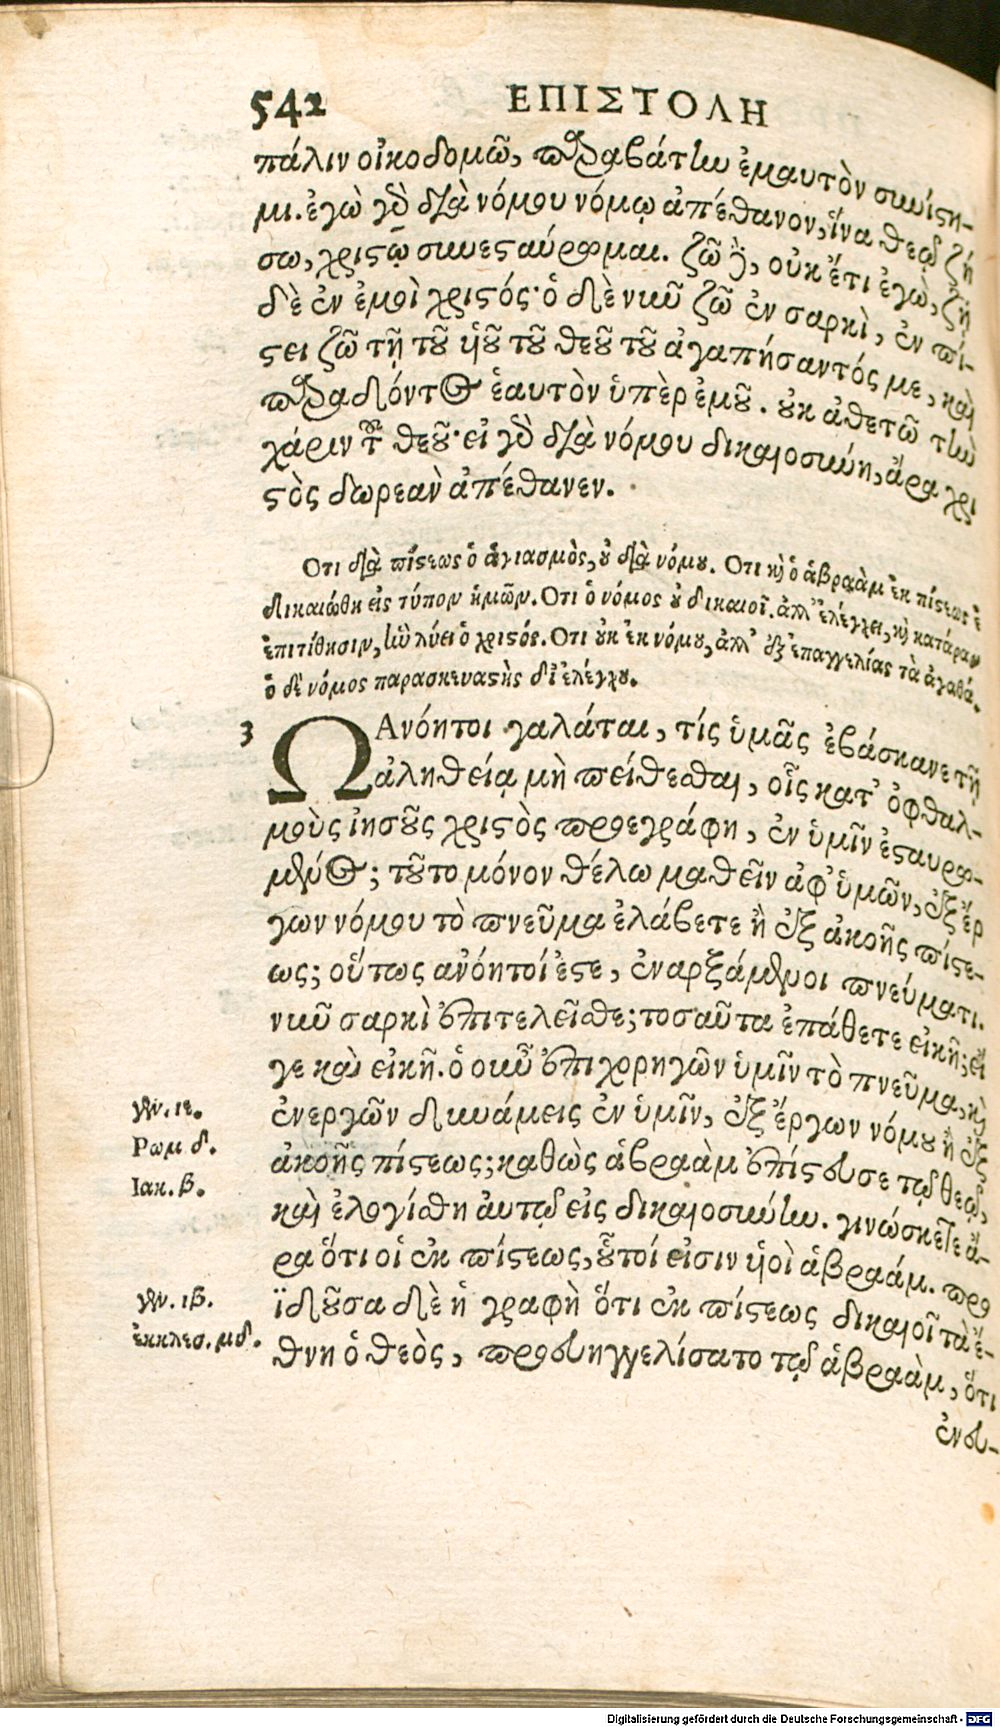 542 ΕΠΙΣΤΟΛΗ
πάλιν οἰκοδομῶ, παραβάτην ἐμαυτὸν συνίστη-
μι. ἐγὼ γὸ διὰ νόμου νόμῳ ἀπέθανον, ἵνα θεῷ ζή
σω, χριστῷ συνεσταύρωμαι. ζῶ δὲ, οὐκ ἔτι ἐγὼ, ζῇ
δὲ ἐν ἐμοὶ χριστός· ὁ δὲ νῦν ζῶ ἐν σαρκὶ, ἐν πί-
στει ζῶ τῇ τοῦ ὑοῦ τοῦ θεοῦ τοῦ ἀγαπήσαντός με, καὶ
παραδόντος ἑαυτὸν ὑπὲρ ἐμοῦ. οὐκ ἀθετῶ τὴν
χάριν τοῦ θεοῦ· εἰ γὸ διὰ νόμου δικαιοσύνη, ἄρα χρι
στὸς δωρεὰν ἀπέθανεν.
Ὅτι διὰ πίστεως ὁ ἁγιασμὸς, οὐ διὰ νόμου. Ὅτι καὶ ὁ ἀβραὰμ ἐκ πίστεως ἐ
δικαιώθη εἰς τύπον ἡμῶν. Ὅτι ὁ νόμος οὐ δικαιοῖ. ἀλλ' ἐλέγχει, καὶ κατάραν
ἐπιτίθησιν, ἣν λύει ὁ χριστός. Ὅτι οὐκ ἐκ νόμου, ἀλλ' ἐξ ἐπαγγελίας τὰ ἀγαθά.
ὁ δὲ νόμος παρασκευαστὴς δι' ἐλέγχου.
3 Ω Ανόητοι γαλάται, τίς ὑμᾶς ἐβάσκανε τῇ
ἀληθείᾳ μὴ πείθεσθαι, οἷς κατ' ὀφθαλ-
μοὺς ἰησοῦς χριστὸς προεγράφη, ἐν ὑμῖν ἐσταυρω-
μένος; τοῦτο μόνον θέλω μαθεῖν ἀφ' ὑμῶν, ἐξ ἔρ
γων νόμου τὸ πνεῦμα ἐλάβετε ἢ ἐξ ἀκοῆς πίστε-
ως; οὕτως ἀνόητοί ἐστε, ἐναρξάμενοι πνεύματι.
νῦν σαρκὶ ἐπιτελεῖσθε; τοσαῦτα ἐπάθετε εἰκῆ; εἴ
γε καὶ εἰκῆ. ὁ οὖν ἐπιχορηγῶν ὑμῖν τὸ πνεῦμα, καὶ
γεν. ιε. ἐνεργῶν δυνάμεις ἐν ὑμῖν, ἐξ ἔργων νόμου ἢ ἐξ
Ρωμ δ. ἀκοῆς πίστεως; καθὼς ἀβραὰμ ἐπίστευσε τῷ θεῷ,
Ιακ. β. καὶ ἐλογίσθη αὐτῷ εἰς δικαιοσύνην. γινώσκετε ἄ-
ρα ὅτι οἱ ἐκ πίστεως, οὗτοί εἰσιν ὑοὶ ἀβραάμ. προ
γεν. ιβ. ϊδοῦσα δὲ ἡ γραφὴ ὅτι ἐκ πίστεως δικαιοῖ τὰ ἔ-
ἐκκλεσ. μδ. θνη ὁ θεὸς, προευηγγελίσατο τῷ ἀβραὰμ, ὅτι
ἐνευ-
Digitalisierung gefördert durch die Deutsche Forschungsgemeinschaft - DFG